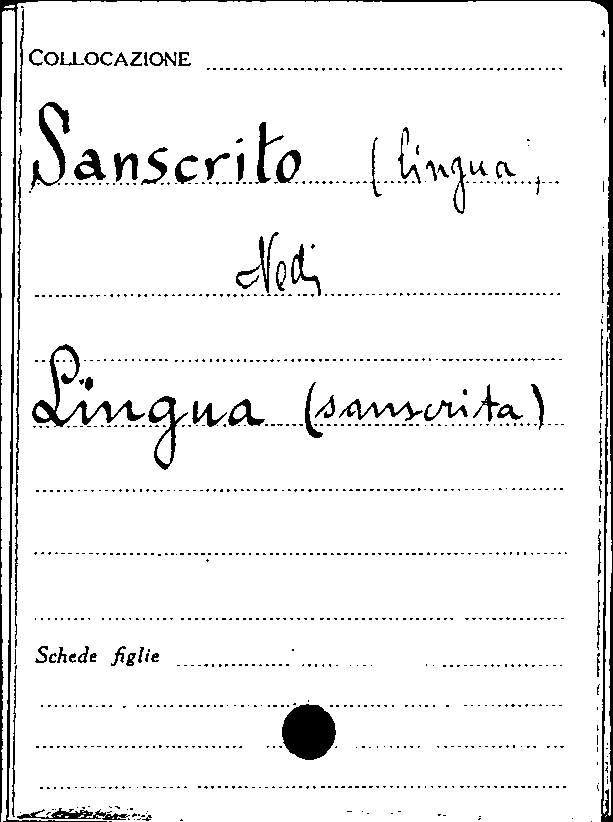 COLLOCAZIONE
Sanscrito (lingua)
Vedi
Lingua (sanscrita)
Schede figlie